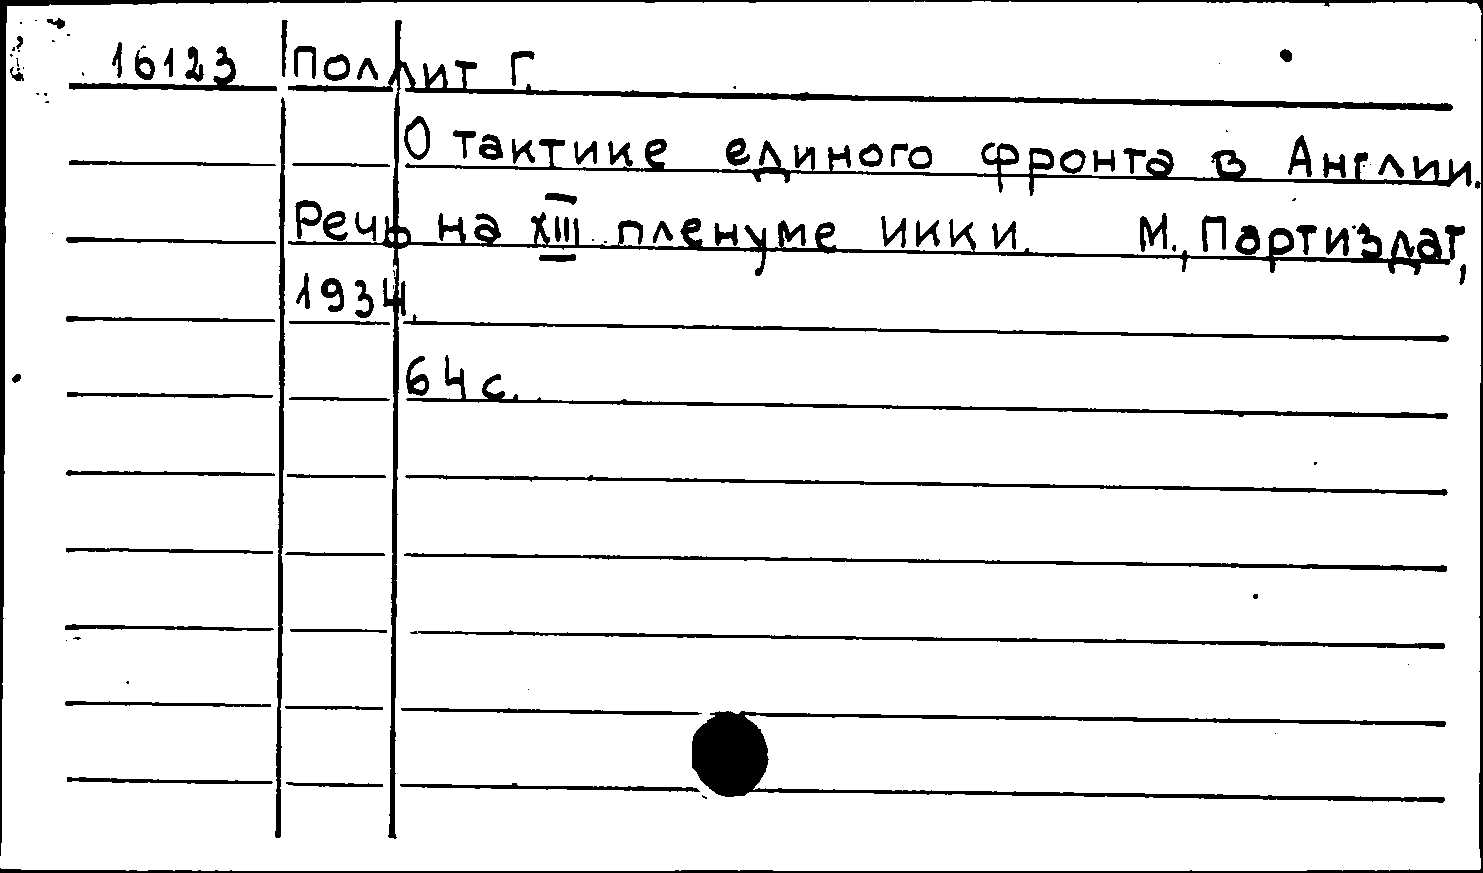 16123 Поллит Г.
О тактике единого фронта в Англии.
Речь на XIII пленуме ИККИ. М., Партиздат,
1934.
64 с.